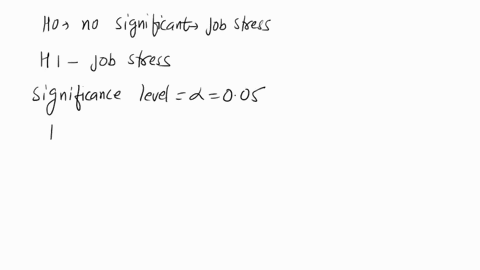 H0→ no significant→ job stress
H1 - job stress
Significance level = α = 0.05
|